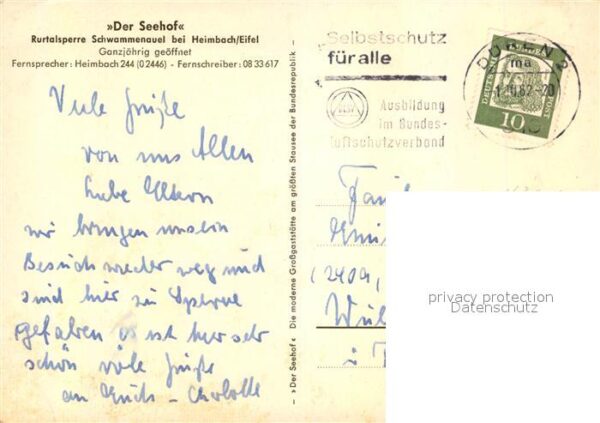 »Der Seehof«
Rurtalsperre Schwammenauel bei Heimbach/Eifel
Ganzjährig geöffnet
Fernsprecher: Heimbach 244 (0 2446) - Fernschreiber: 08 33 617
Viele Grüße
von uns Allen
Liebe Eltern
wir bringen unsern
Besuch wieder weg und
sind hier zu Sperre
gefahren es ist hier sehr
schön viele Grüße
an Euch - Charlotte
- »Der Seehof« Die moderne Großgaststätte am größten Stausee der Bundesrepublik -
Selbstschutz
für alle
Ausbildung
im Bundes-
luftschutzverband
DÜREN 2
ma
62-20
DEUTSCHE BUNDESPOST
10
Fami
(240a,
privacy protection
Datenschutz